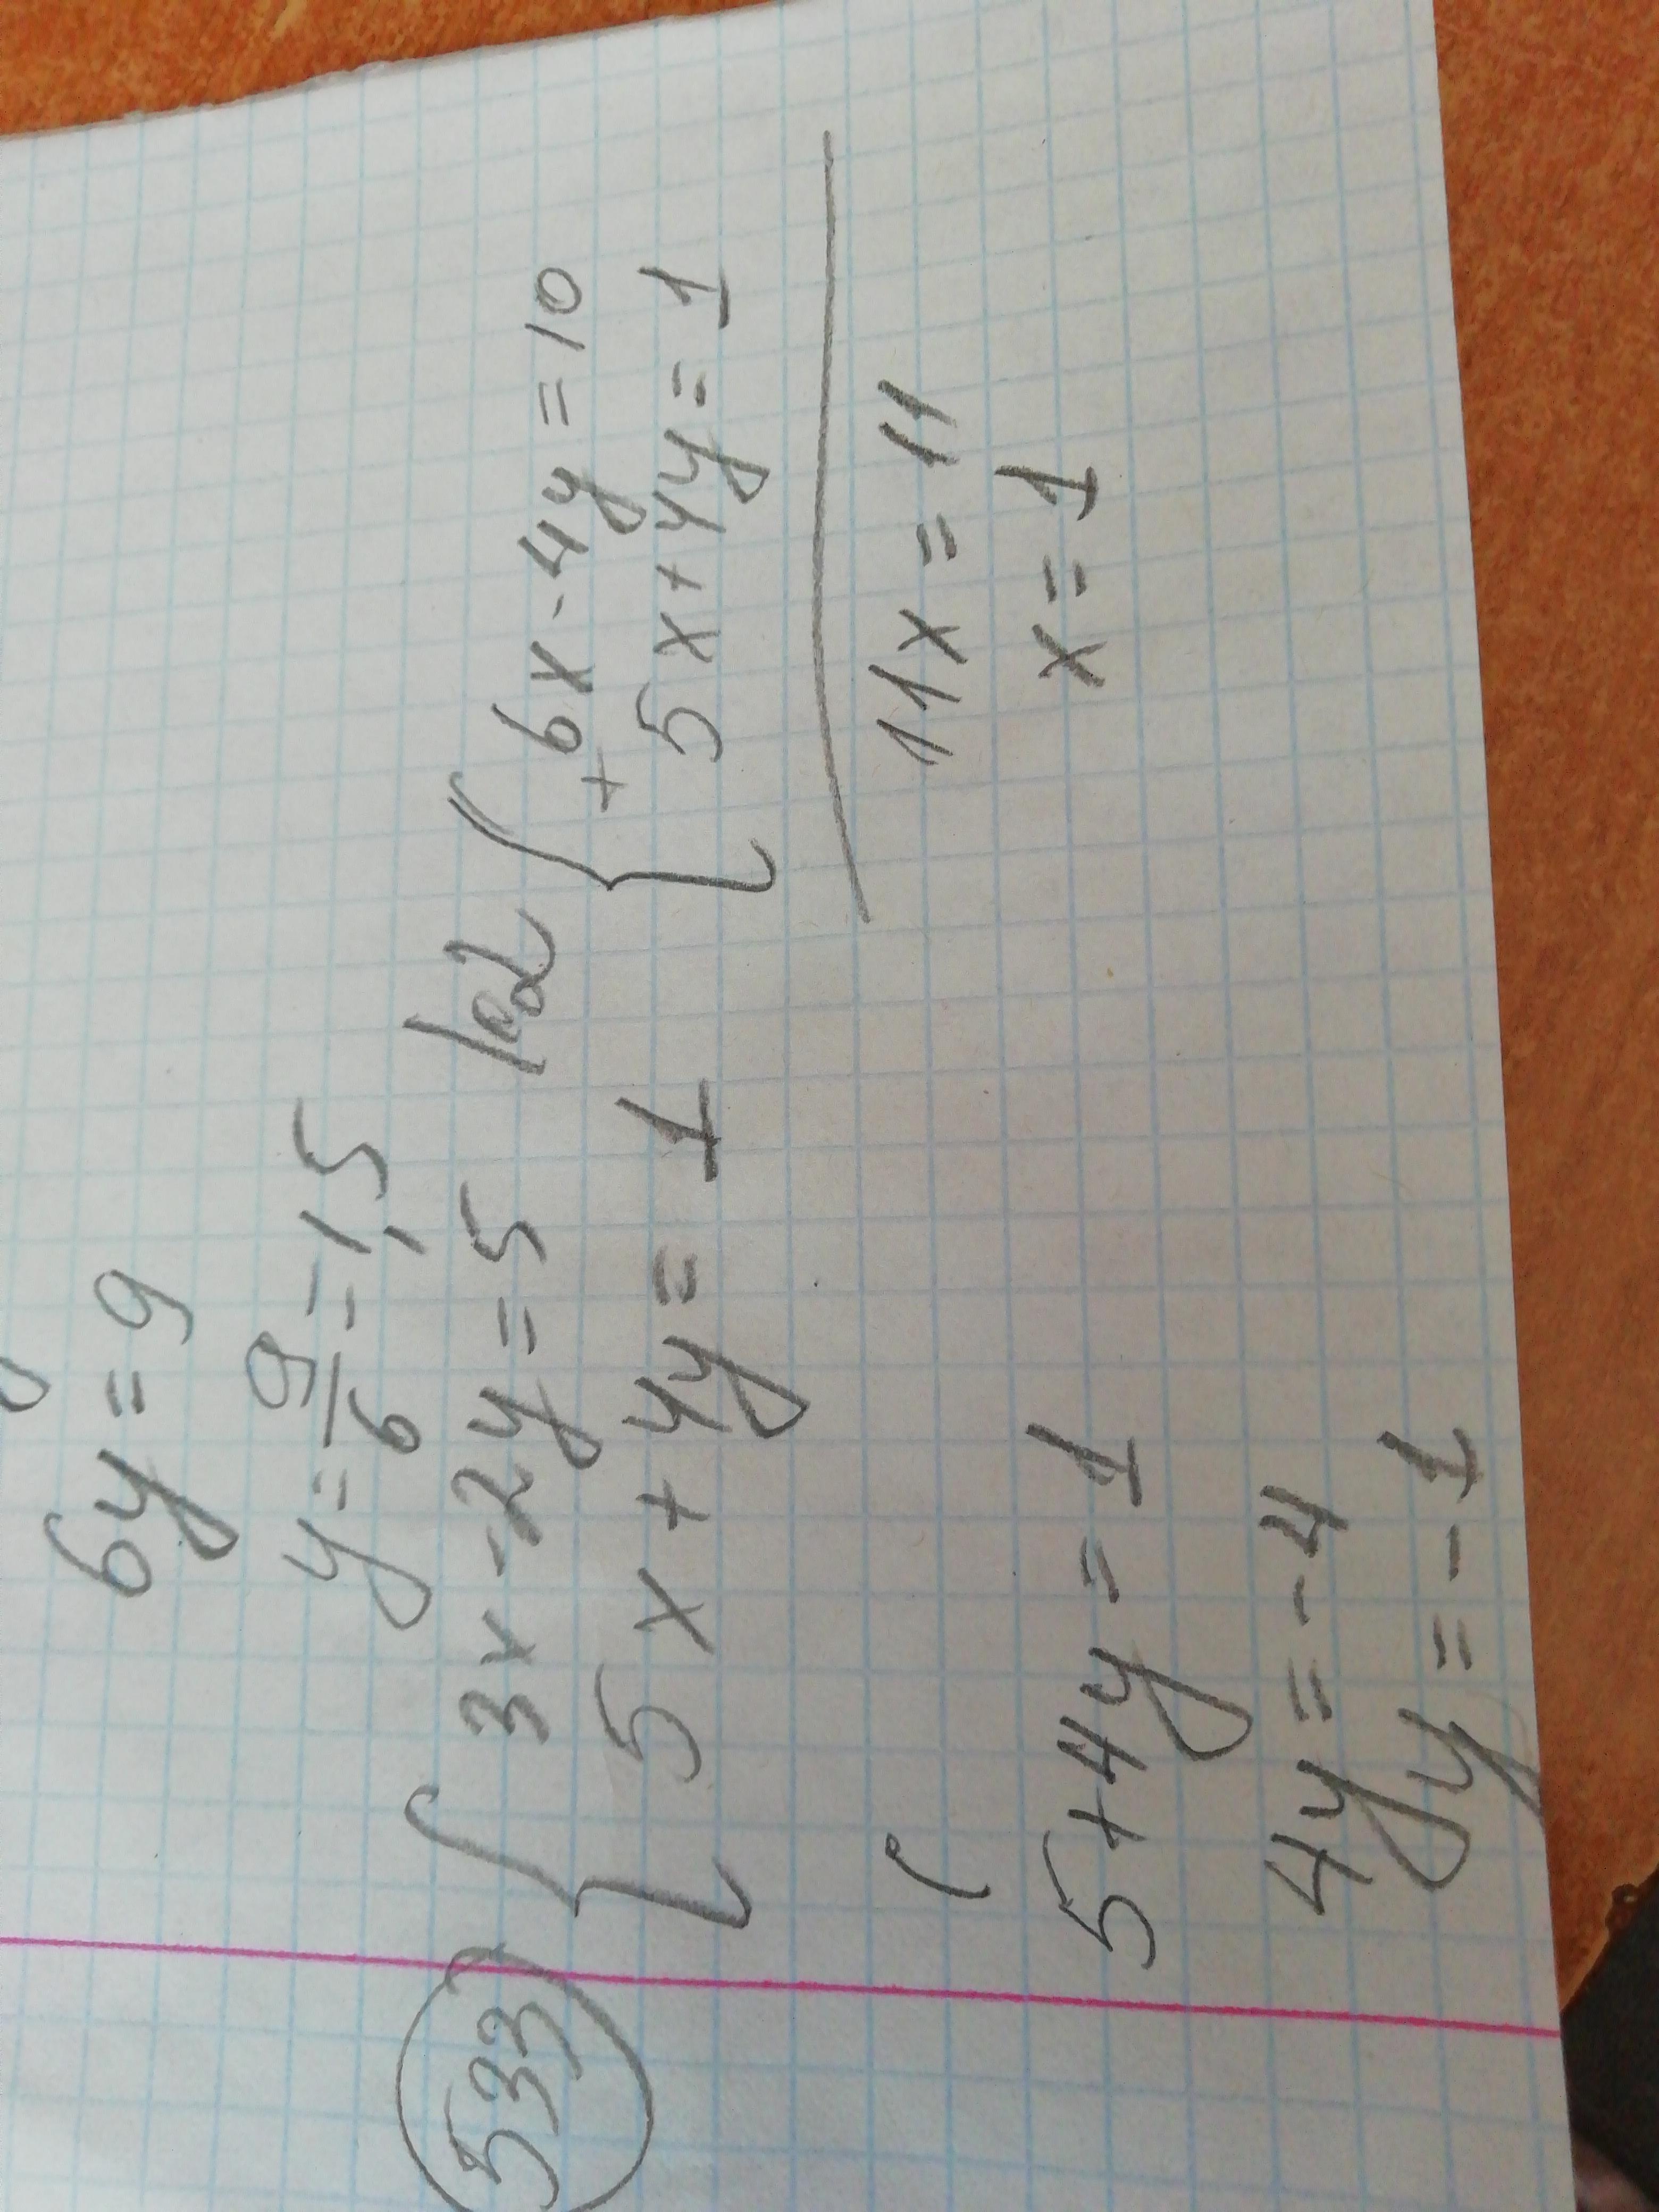 6y = 9
y = 9/6 = 1,5
533 { 3x - 2y = 5 |·2 { 6x - 4y = 10
5x + 4y = 1 + 5x + 4y = 1
11x = 11
5 + 4y = 1 x = 1
4y = -4
y = -1